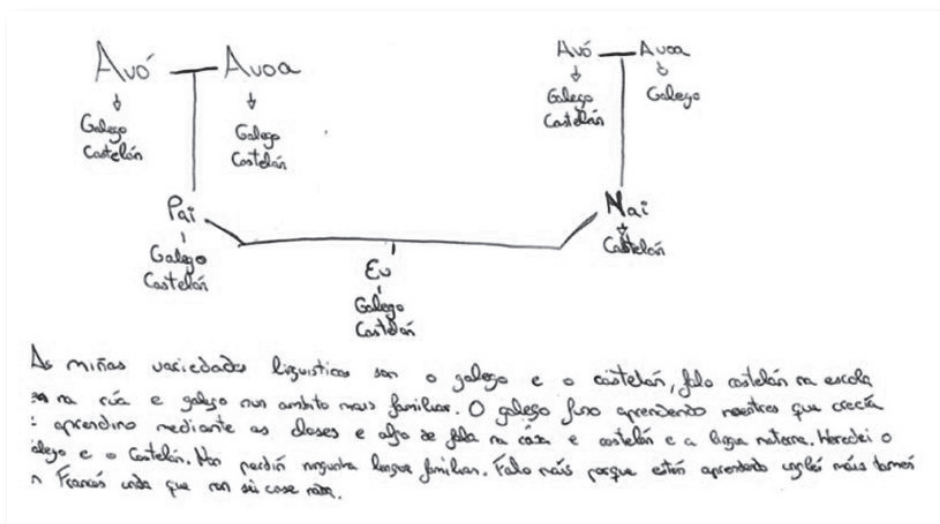 Avó Avoa
Galego
Castelán
Galego
Castelán
Avó Avoa
Galego
Castelán
Galego
Pai
Galego
Castelán
Nai
Castelán
Eu
Galego
Castelán
As miñas variedades linguisticas son o galego e o castelán, falo castelán na escola
na rúa e galego nun ambito mais familiar. O galego funo aprendendo mentres que crecía
aprendino mediante as clases e algo se fala na casa e castelán e a lingua materna. Heredei o
galego e o Castelán. Non perdín ningunha lengua familiar. Falo máis porque estou aprendendo máis tamen
Francés que non sei case nada.